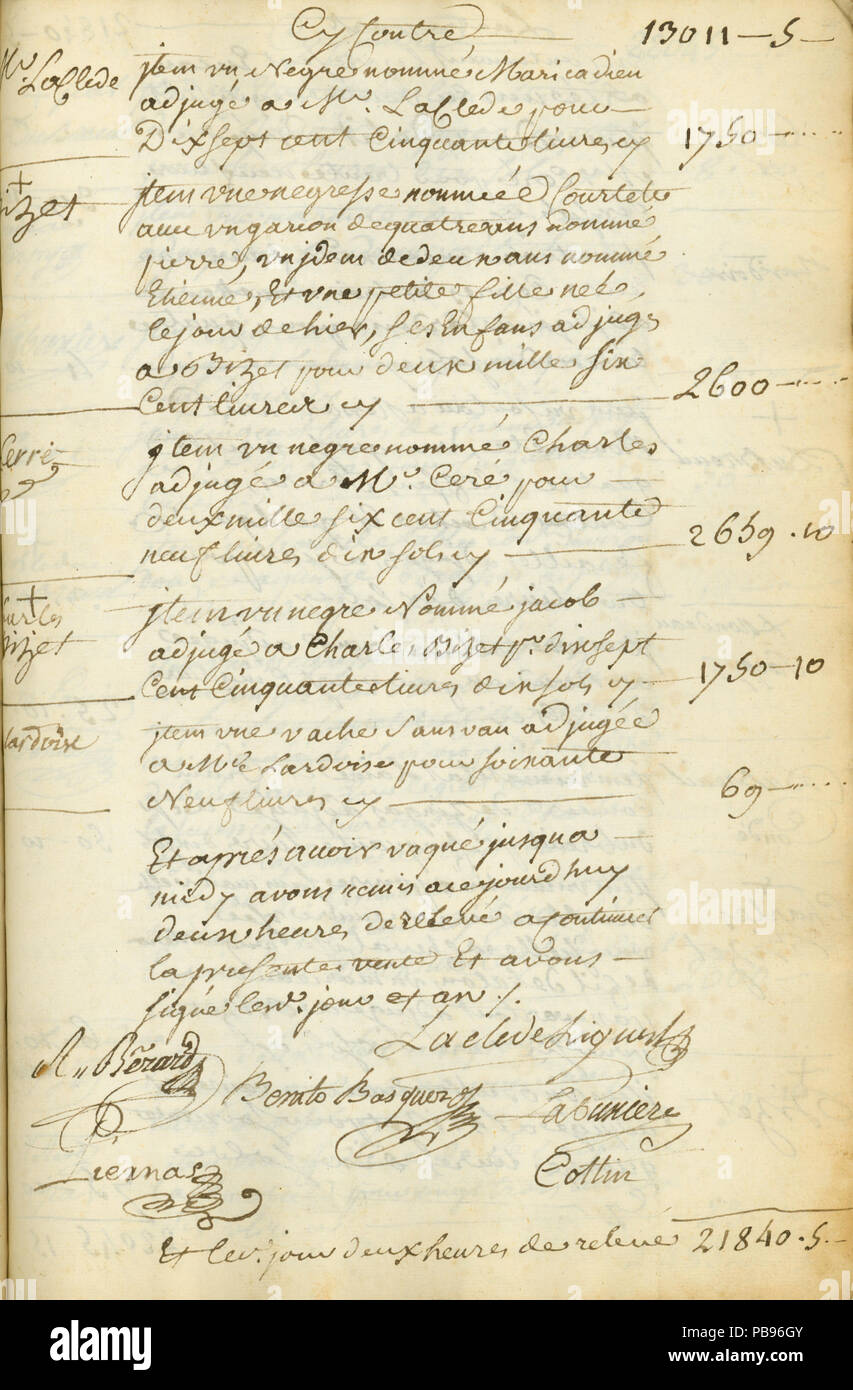 Cy Contre 13011—5—
Mr. Laclede
jtem vn Negre nommé Maricadieu
adjugé a Mr. Laclede pour
Dixsept cent Cinquante livres cy 1750—
Bizet
jtem vne negresse nommée Courtete
avec vn garcon de quatre ans nommé
pierre, vn jdem de deux ans nommé
Etienne, Et vne petite fille née
le jour de hier, ses Enfans adjugés
a Bizet pour deux mille six
Cent livres cy 2600—
Cerré
jtem vn negre nommé Charles
adjugé a Mr. Ceré pour
deux mille six cent Cinquante
neuf livres dix sols cy 2659.10
Charles
Bizet
jtem vn negre Nommé jacob
adjugé a Charles Bizet pr. dixsept
Cent Cinquante livres dix sols cy 1750—10
Lardoise
jtem vne vache Sans vau adjugée
a Mr Lardoise pour soixante
Neuf livres cy 69—
Et aprés avoir vaqué jusqu a
midy avons remis a cejourdhuy
deux heures de relevé a Continuer
la presente vente Et avons
signé lesd. jour et an ./.
Laclede Liguest
A. Bérard
Benito Basquez
Labuxiere
Piernas
Cottin
Et led. jour deux heures de relevé 21840.5.—
alamy
Image ID: PB96GY
www.alamy.com